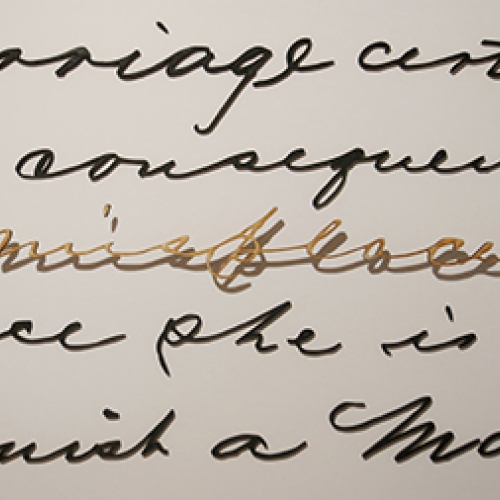 rriage cert
consequen
misplac
ce she is
nish a Ma